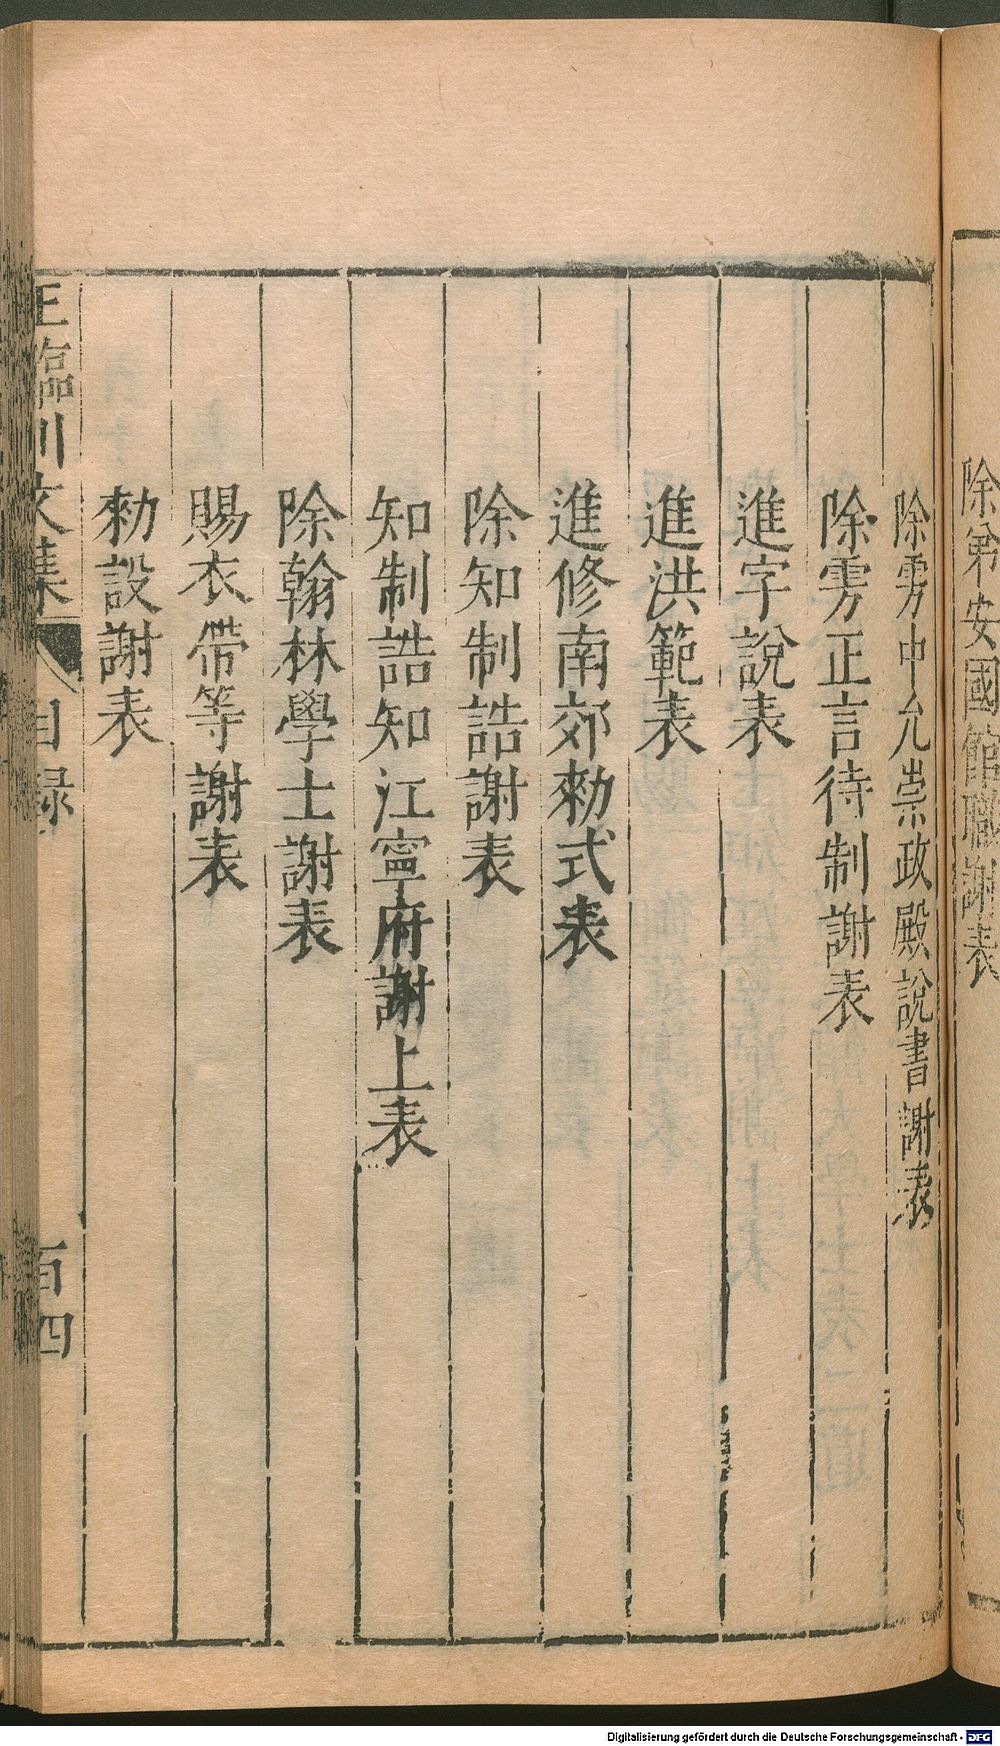 除弟安國館職謝表
除雱中允崇政殿說書謝表
除雱正言待制謝表
進字說表
進洪範表
進修南郊勑式表
除知制誥謝表
知制誥知江寧府謝上表
除翰林學士謝表
賜衣帶等謝表
勑設謝表
王臨川文集 目録 百四
Digitalisierung gefördert durch die Deutsche Forschungsgemeinschaft - DFG